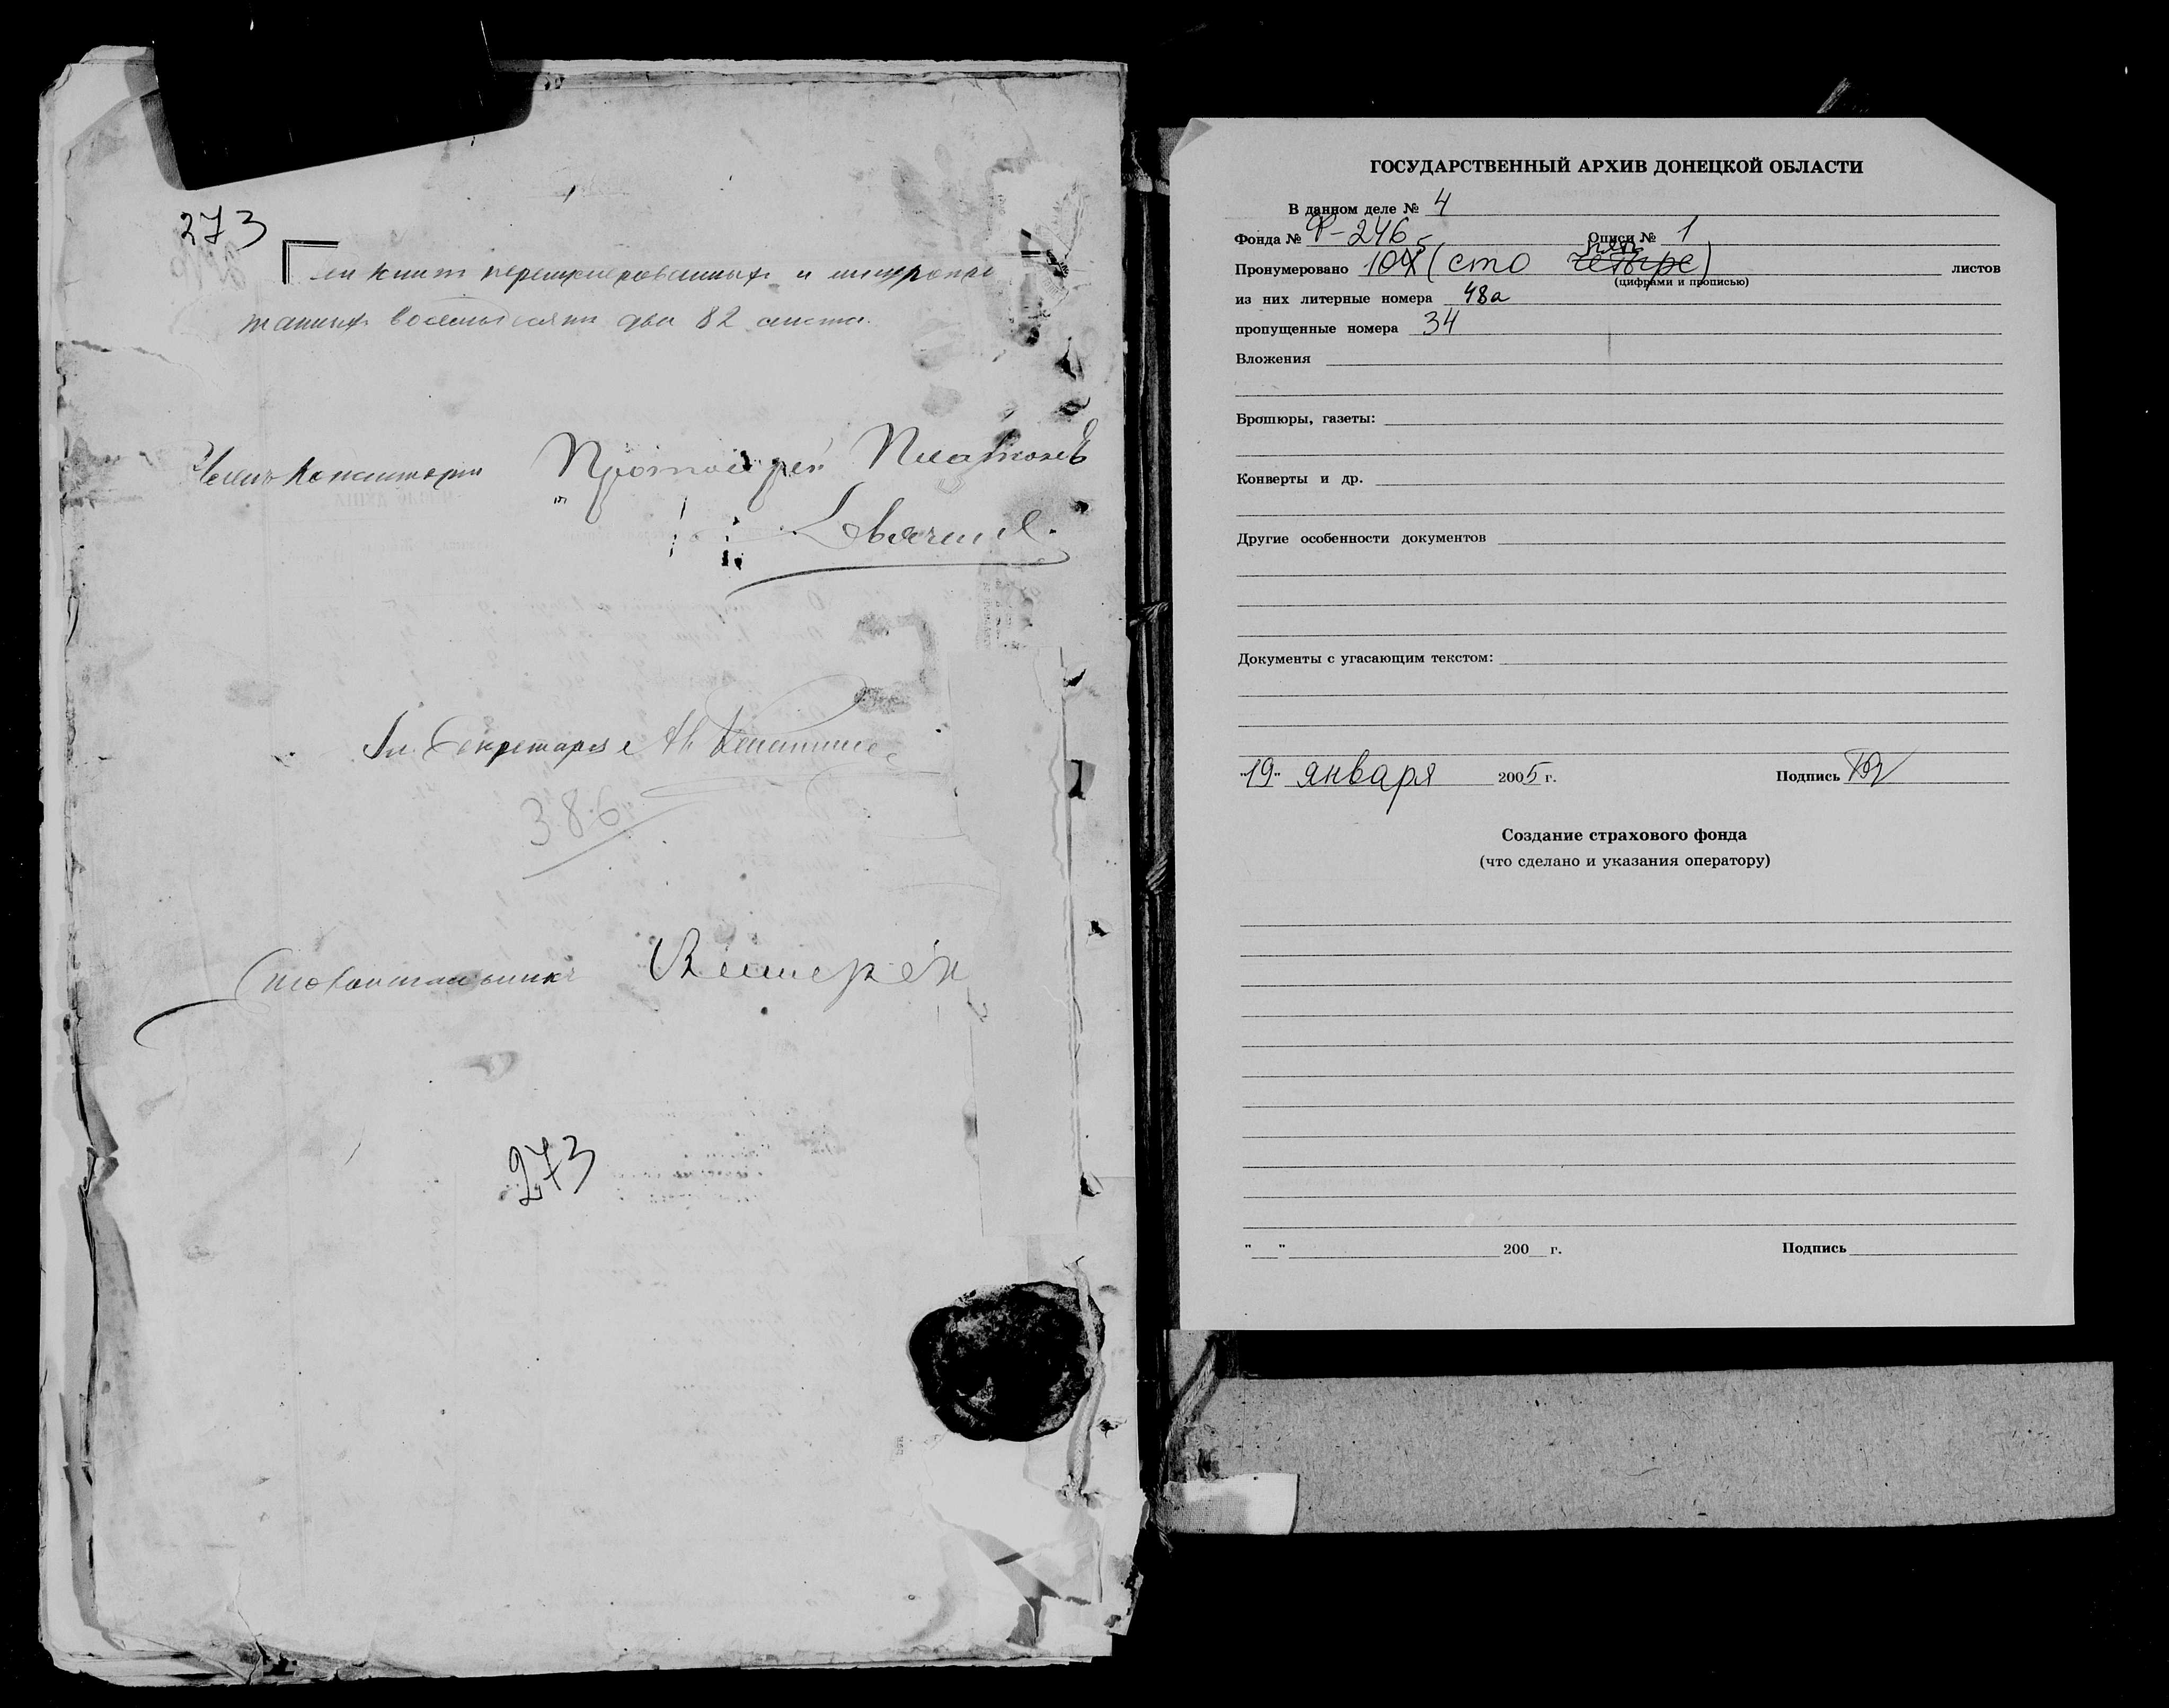 273
книг перенумерованных и
восемьдесят два 82 листа.
Членъ Консисторіи Протоіерей Платоновъ
Секретаря
386
Столоначальникъ
273
ГОСУДАРСТВЕННЫЙ АРХИВ ДОНЕЦКОЙ ОБЛАСТИ
В данном деле № 4
Фонда № Ф-246 Описи № 1
5 пять
Пронумеровано 104 (сто четыре) листов
(цифрами и прописью)
из них литерные номера 48а
пропущенные номера 34
Вложения
Брошюры, газеты:
Конверты и др.
Другие особенности документов
Документы с угасающим текстом:
"19" января 2005 г. Подпись
Создание страхового фонда
(что сделано и указания оператору)
" " 200 г. Подпись